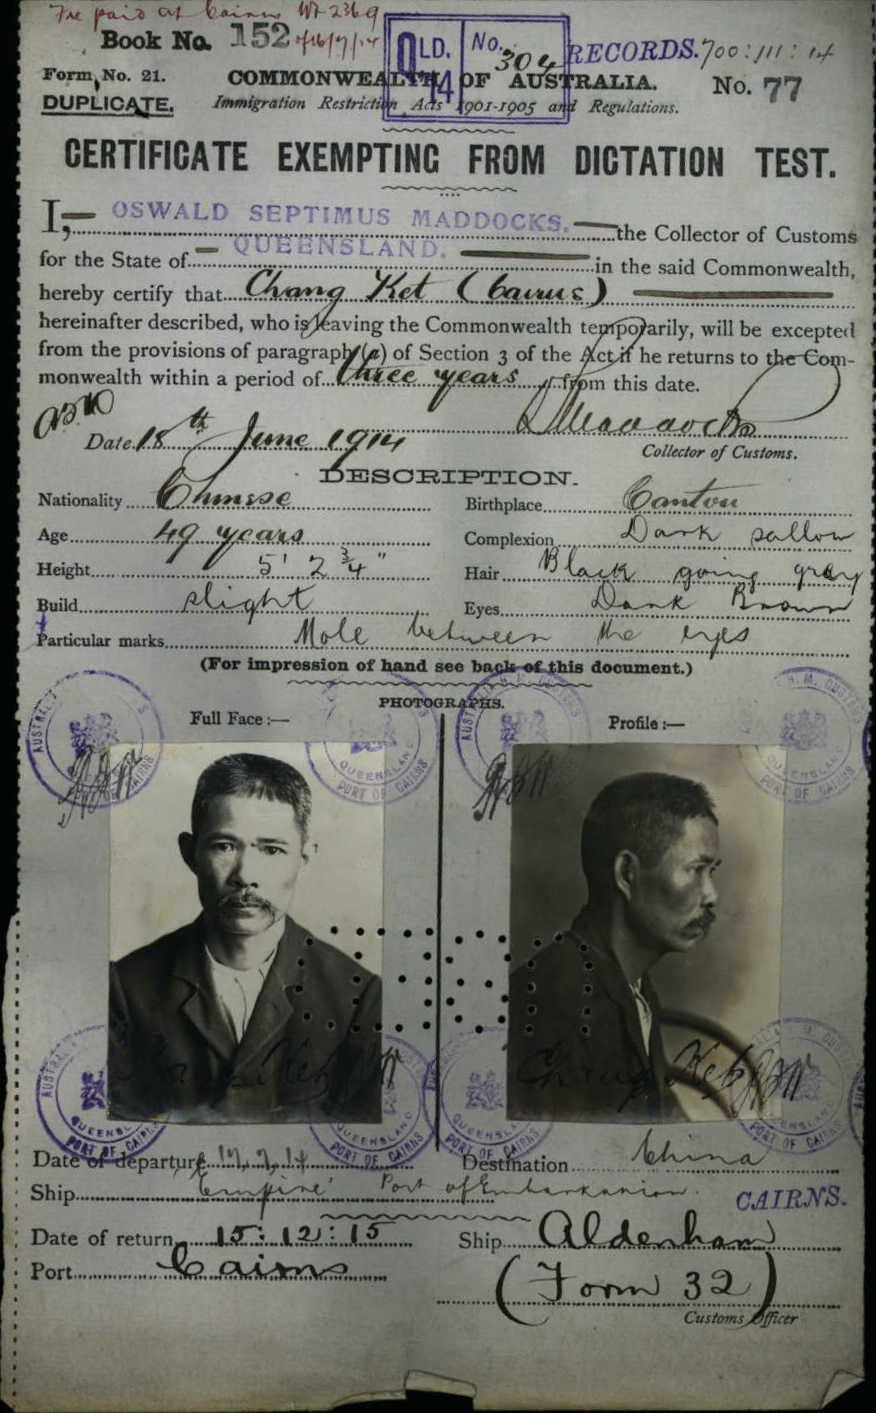 Fee paid at Cairns
Book No. 152
QLD. No. 304 RECORDS. 700:111:14
14
Form No. 21. COMMONWEALTH OF AUSTRALIA. No. 77
DUPLICATE. Immigration Restriction Acts 1901-1905 and Regulations.
CERTIFICATE EXEMPTING FROM DICTATION TEST.
I, OSWALD SEPTIMUS MADDOCKS. the Collector of Customs
for the State of QUEENSLAND. in the said Commonwealth,
hereby certify that Chang Ket (Cairns)
hereinafter described, who is leaving the Commonwealth temporarily, will be excepted
from the provisions of paragraph (a) of Section 3 of the Act if he returns to the Com-
monwealth within a period of three years from this date.
Maddocks
Date 18th June 1914 Collector of Customs.
DESCRIPTION.
Nationality Chinese Birthplace Canton
Age 49 years Complexion Dark sallow
Height 5' 2 3/4" Hair Black going grey
Build slight Eyes Dark Brown
Particular marks Mole between the eyes
(For impression of hand see back of this document.)
PHOTOGRAPHS.
Full Face :— Profile :—
QUEENSLAND
PORT OF CAIRNS
Chang Ket
Date of departure 17.7.14 Destination China
Ship Empire Port of Embarkation. CAIRNS.
Date of return 15:12:15 Ship Aldenham
Port Cairns (Form 32)
Customs Officer